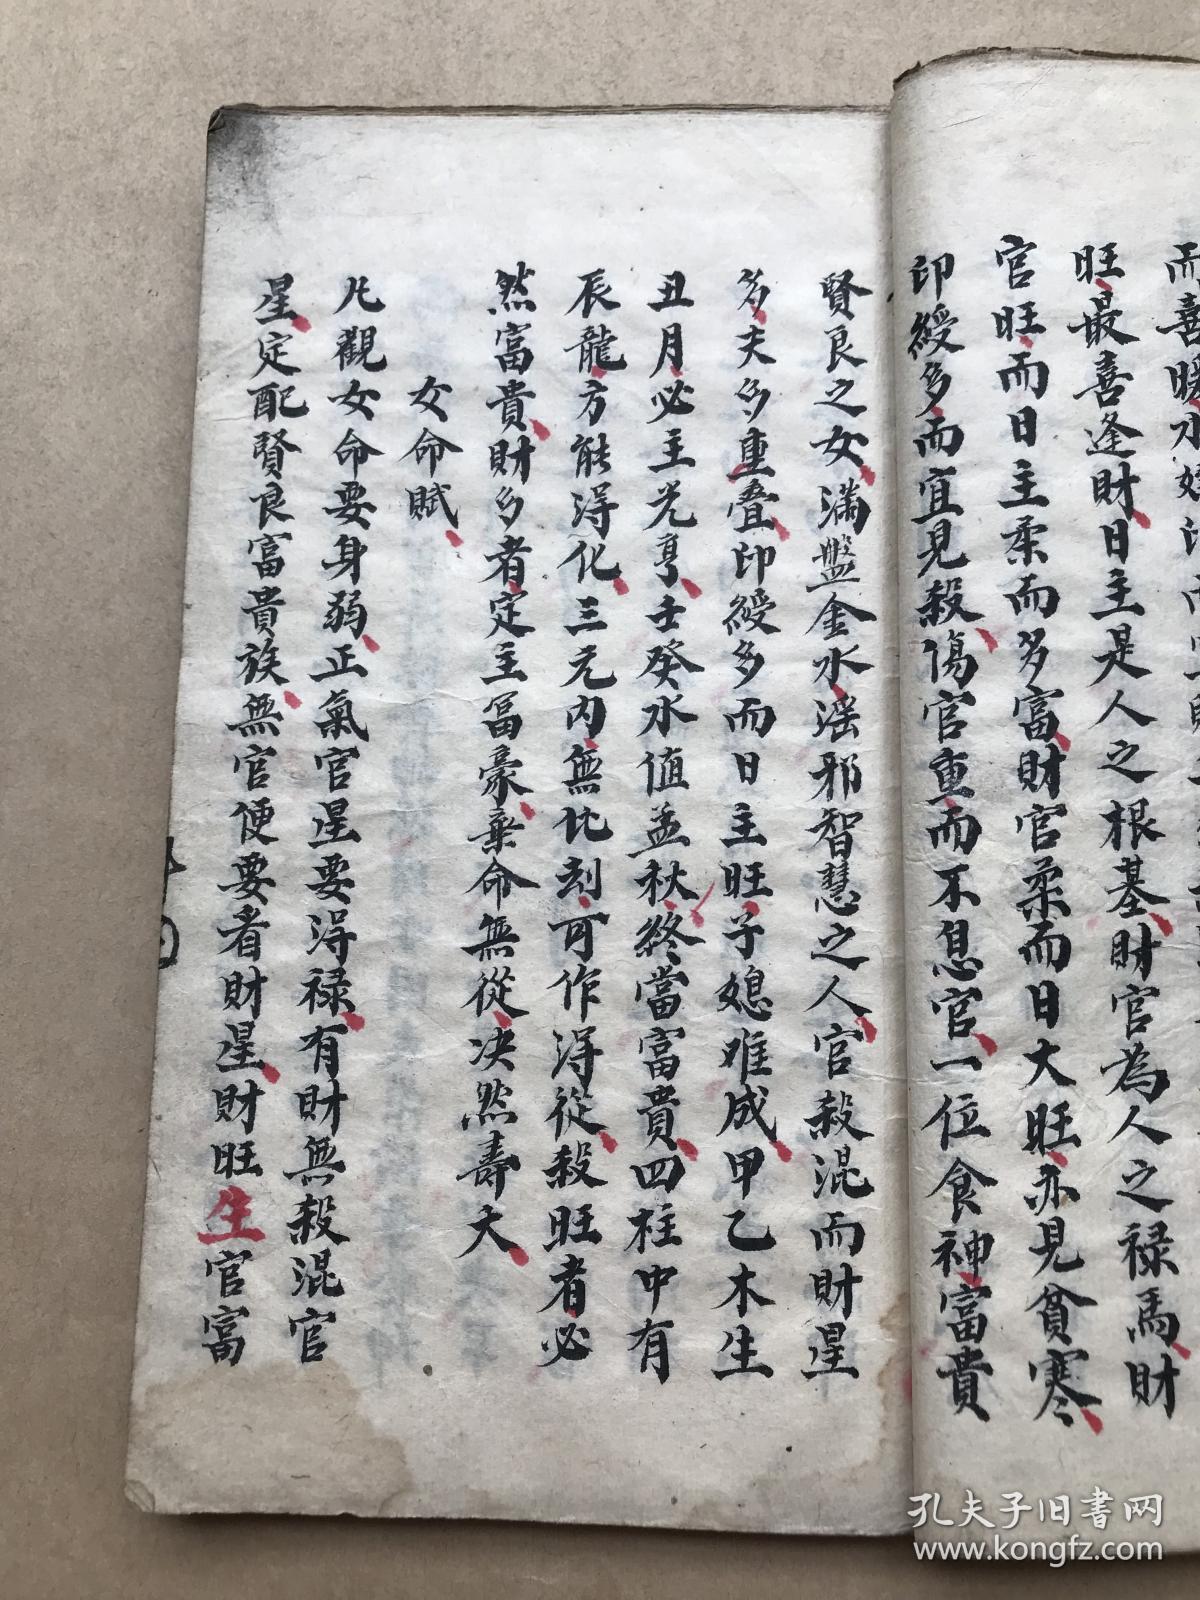 而喜暖水
旺最喜逢財日主是人之根基財官為人之禄馬財
官旺而日主柔而多富財官柔而日大旺亦見貧寒
印綬多而宜見殺傷官重而不息官一位食神富貴
賢良之女滿盤金水滛邪智慧之人官殺混而財星
多夫多重叠印綬多而日主旺子媳难成甲乙木生
丑月必主光亨壬癸水值孟秋終當富貴四柱中有
辰龍方能淂化三元內無比刻可作淂從殺旺者必
然富貴財多者定主富豪棄命無從决然壽夭
女命賦
凡觀女命要身弱正氣官星要淂禄有財無殺混官
星定配賢良富貴族無官便要看財星財旺生官富
孔夫子旧书网
www.kongfz.com